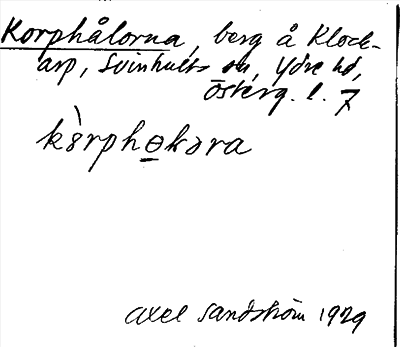 Korphålorna, berg å Klock-
arp, Svinhults sn, Ydre hd,
Österg. l. 7
kò̤rphɵ̲kəra
Axel Sandström 1929